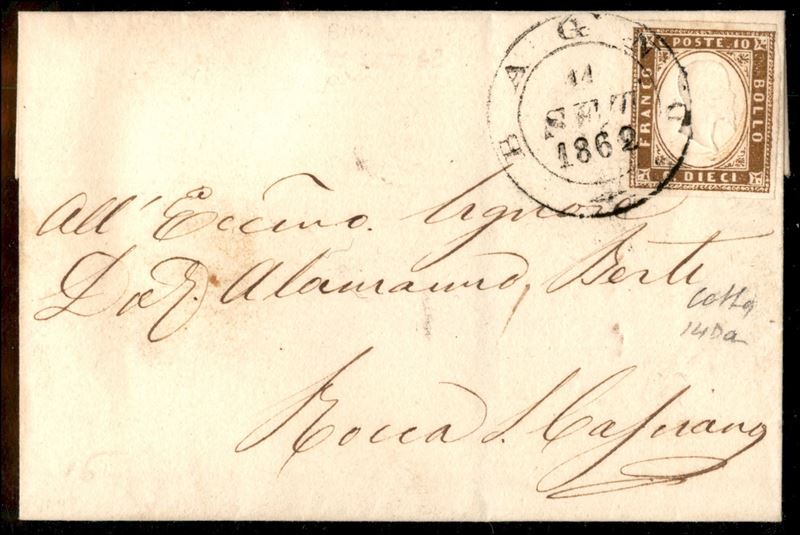 BAGNO
11
SET
1862
FRANCO
POSTE 10
BOLLO
C. DIECI
All' Eccmo. Signore
Dot. Alamanno Berti
Rocca S. Casciano
Cotta
14Da